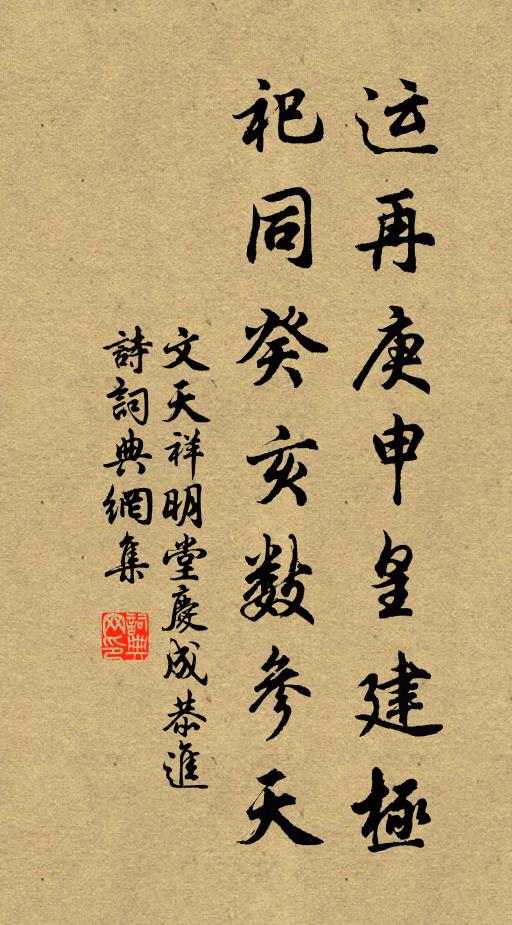 运再庚申皇建極
祀同癸亥数參天
文天祥明堂慶成恭進
詩詞典網集
詞典网印